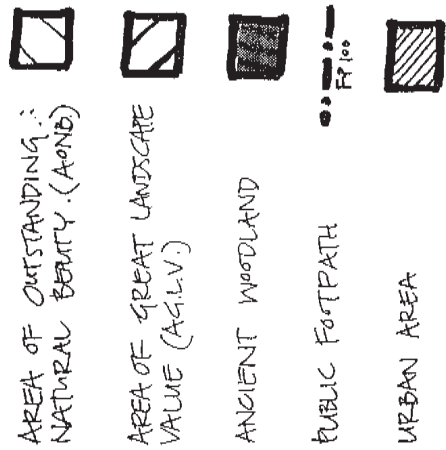 AREA OF OUTSTANDING
NATURAL BEAUTY. (AONB)
AREA OF GREAT LANDSCAPE
VALUE (A.G.L.V.)
ANCIENT WOODLAND
PUBLIC FOOTPATH
FP 100
URBAN AREA